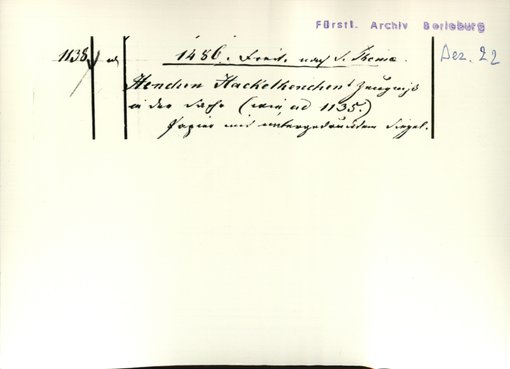 Fürstl. Archiv Berleburg
Dez. 22
1138. 1486. Freit. nach S. Thoma.
Henchen Hackelhenchen's Zeugniß
in der Sache (wie ad 1135.)
Papier mit untergedrucktem Siegel.